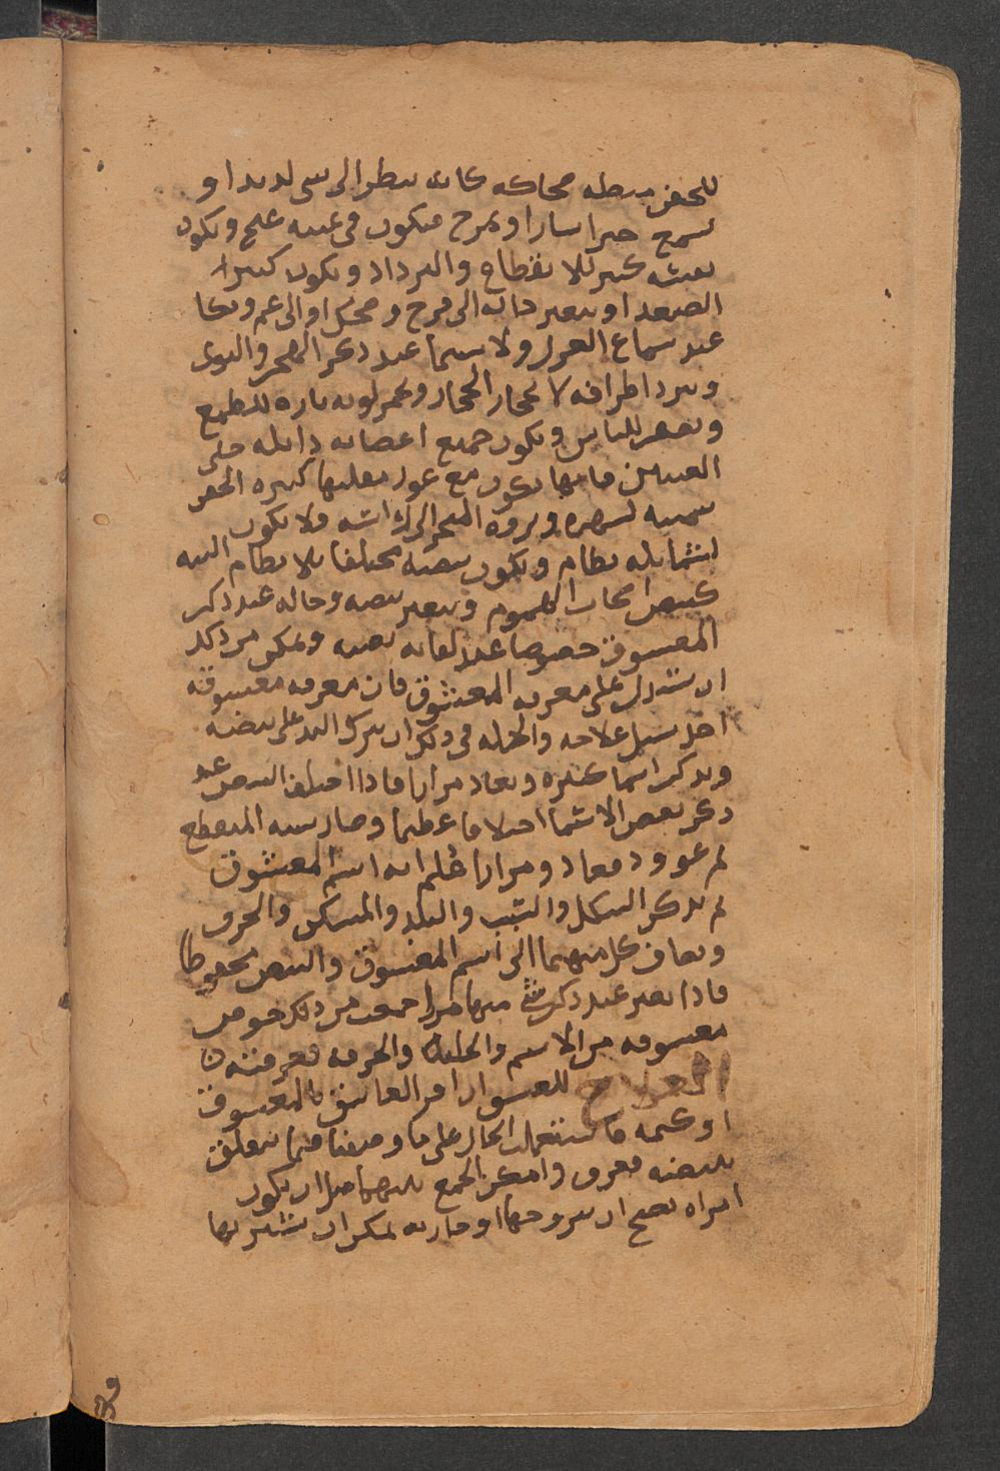 للجفن نشطه محاكه كانه ينظر الى شى لذيذ او
يسمع خبرا سارا او يمزح فيكون فى عينه غنج ويكون
نفسه كثير الانقطاع والترداد ويكون كثير
الصعدا ويتغير حاله الى فرح وضحك او الى غم وبكا
عند سماع الغزل ولا سيما عند ذكر الهجر والنوى
ويبرد اطرافه لا
ويصفر للياس ويكون جميع اعضائه ذابله خلى
العينين فانهما يكون مع غور مقلتهما كبيره الجفن
سمينه لسهره وزفرة المتحرك الى راسه ولا يكون
لشمايله نظام ويكون نبضه مختلفا بلا نظام البته
كنبض اصحاب الهموم ويتغير نبضه وحاله عند ذكر
المعشوق خصوصا عند لقائه بغته ويمكن من ذلك
ان يستدل على معرفه المعشوق فان معرفه معشوقه
احد سبيل علاجه والحيله فى ذلك ان يترك اليد على نبضه
ويذكر اسما كثيره ويعاد مرارا فاذا اختلف النبض عند
ذكر بعض الاسما اختلافا عظيما وصار شبه المنقطع
ثم عوود فعاد ومرارا علم انه اسم المعشوق
ثم يذكر السكك والنسب والبلد والمسكن والحرف
ويضاف كل منهما الى اسم المعشوق والنبض محفوظا
فاذا تغير عند ذكر شى منها مرارا جمعت من ذلك خواص
معشوقه من الاسم والحليه والحرفه فعرفته
العلاج للعشق ان امر العاشق بالمعشوق
او كتمه فاستعملت الحال على ما وصفنا فيما يتعلق
بنبضه فعرف وامكن الجمع بينهما مثل ان يكون
امراه يصح ان يتزوجها او جاريه يمكن ان يشتريها